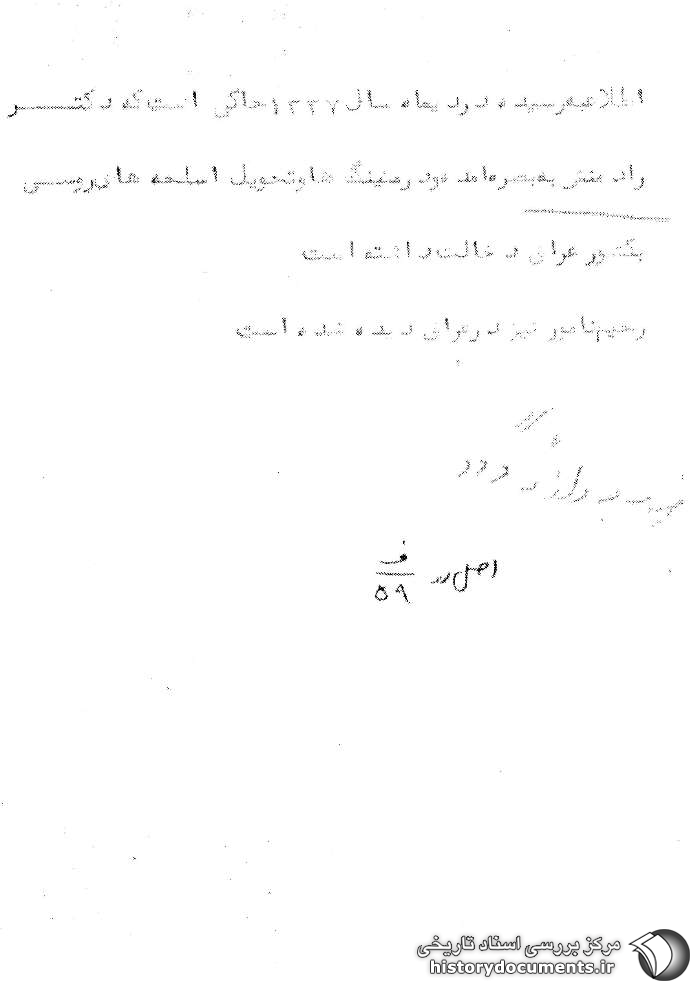 اطلاعیه رسیده در دیماه سال ۱۳۳۷ حاکی است که دکتر
رادمنش به بصره آمده و در میتینگ ها و تحویل اسلحه های روسی
بکشور عراق دخالت داشته است
رحیم نامور نیز در عراق دیده شده است
اصل در ف
۵۹
مرکز بررسی اسناد تاریخی
historydocuments.ir